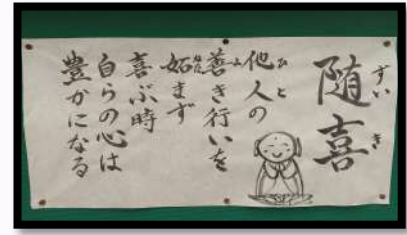 随喜
すいき
他人の
ひと
善き行いを
よ
妬まず
ねた
喜ぶ時
自らの心は
豊かになる